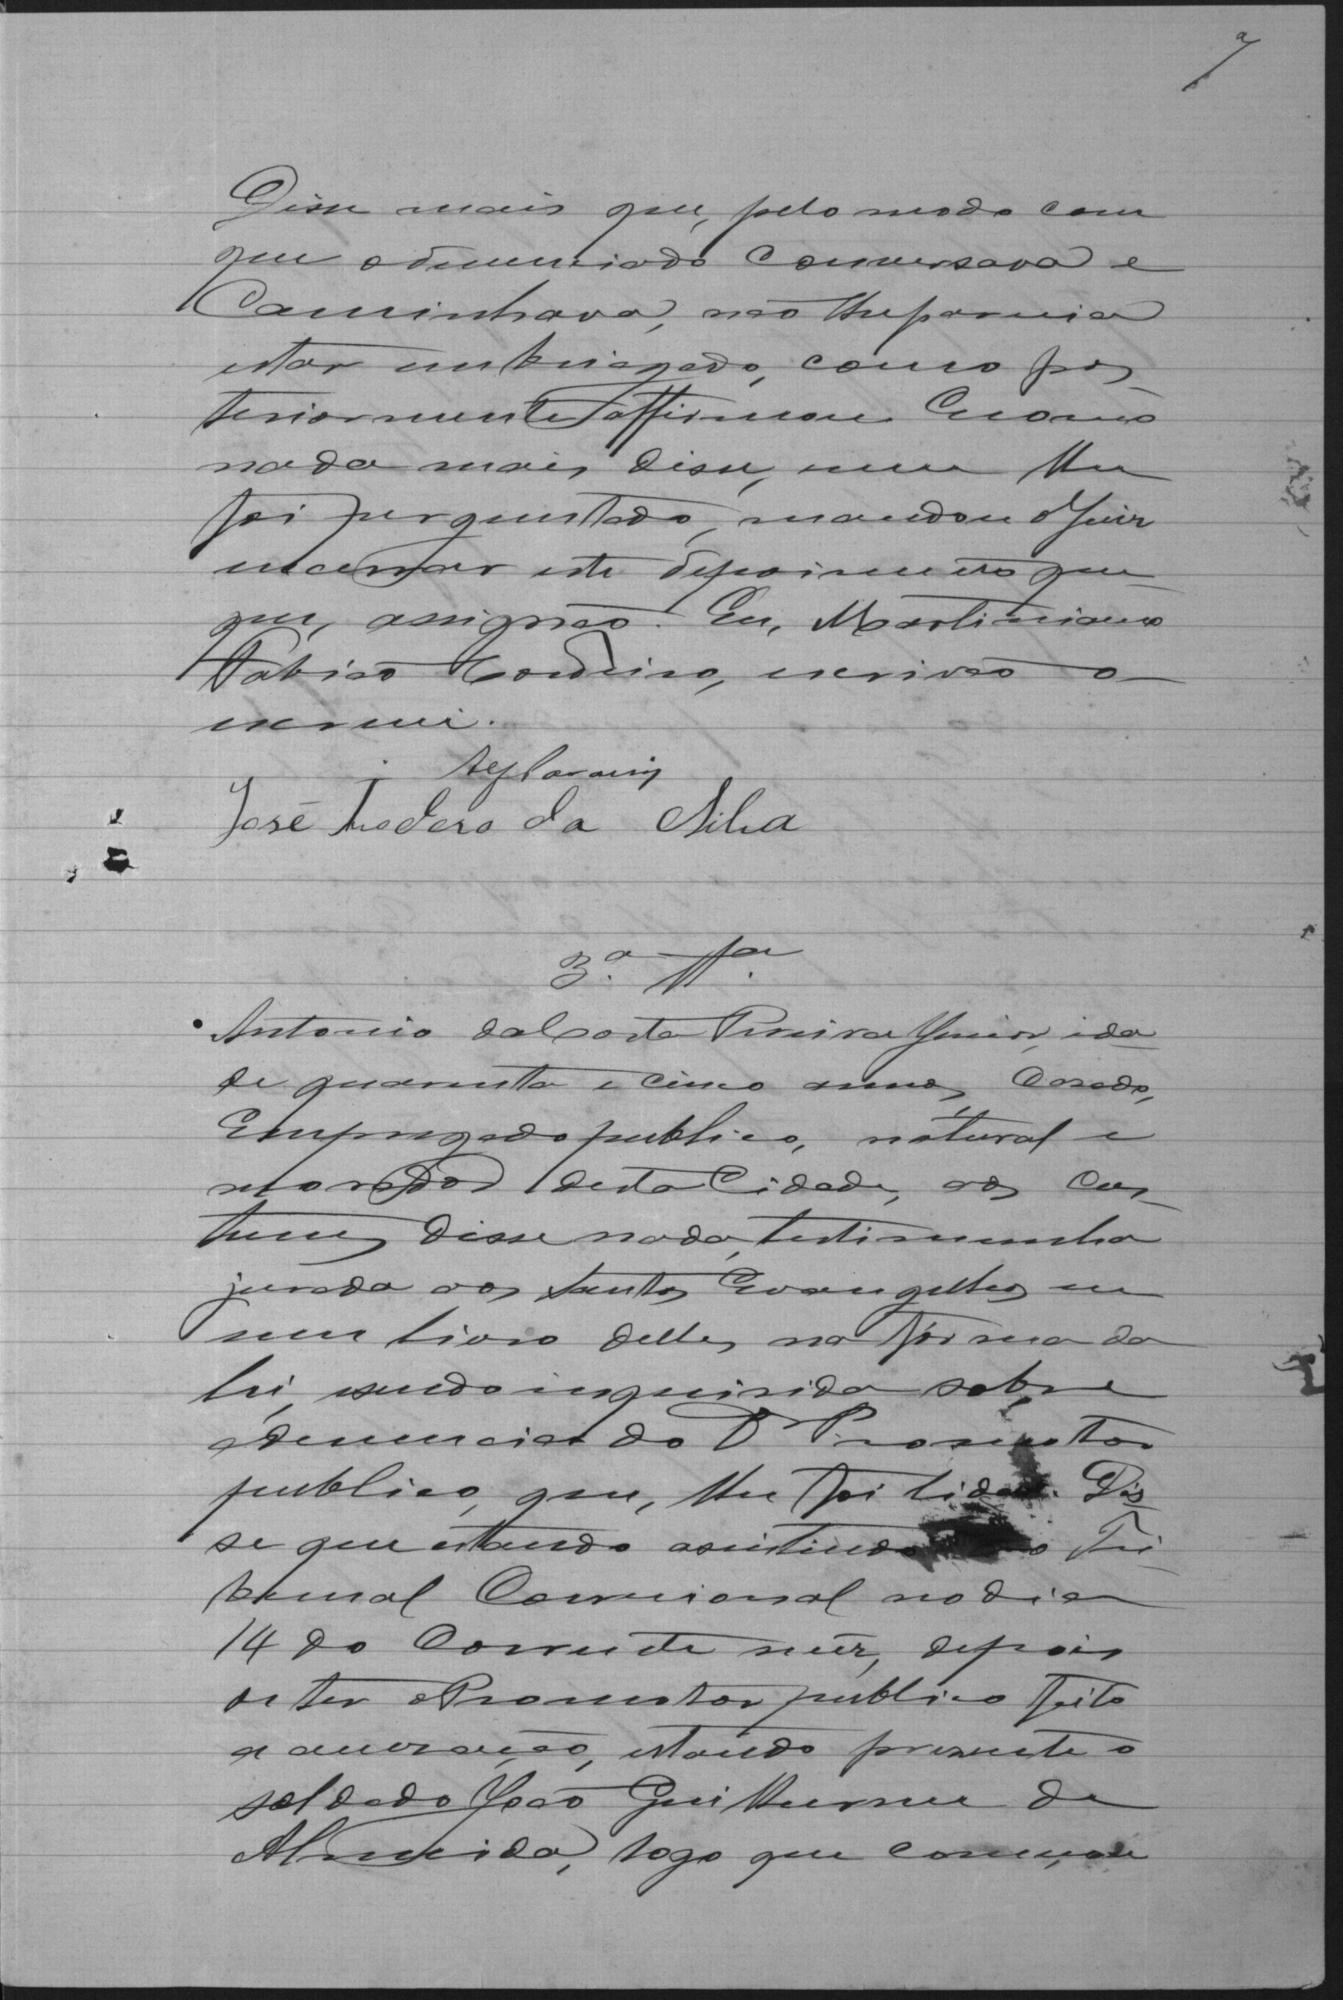 7
Disse mais que, pelo modo com
que o denunciado conversava e
Caminhava, não lhe parecia
estar embriagado, como pos-
teriormente affirmou. E como
nada mais disse, nem lhe
foi perguntado, mandou o Juiz
encerrar este depoimento que
que, assignão. Eu, Martiniano
Fabião Cordeiro, escrivão o
escrevi.
José Teodoro da Silva
3.ª Tta.
Antonio da Costa Pereira Junior, ida
de quarenta e cinco annos, Casado,
Empregado publico, natural e
morador desta Cidade, aos Cos-
tumes disse nada, testimunha
jurada aos Santos Evangelhos em
um livro delles na forma da
lei, e sendo inquirida sobre
a denuncia do Dr. Promotor
publico, que, lhe foi lida. Dis
se que estando assistindo o Tri
bunal Correcional no dia
14 do Corrente mêz, depois
de ter o Promotor publico feito
a accusação, estando presente o
soldado João Guilherme de
Almeida, logo que começou